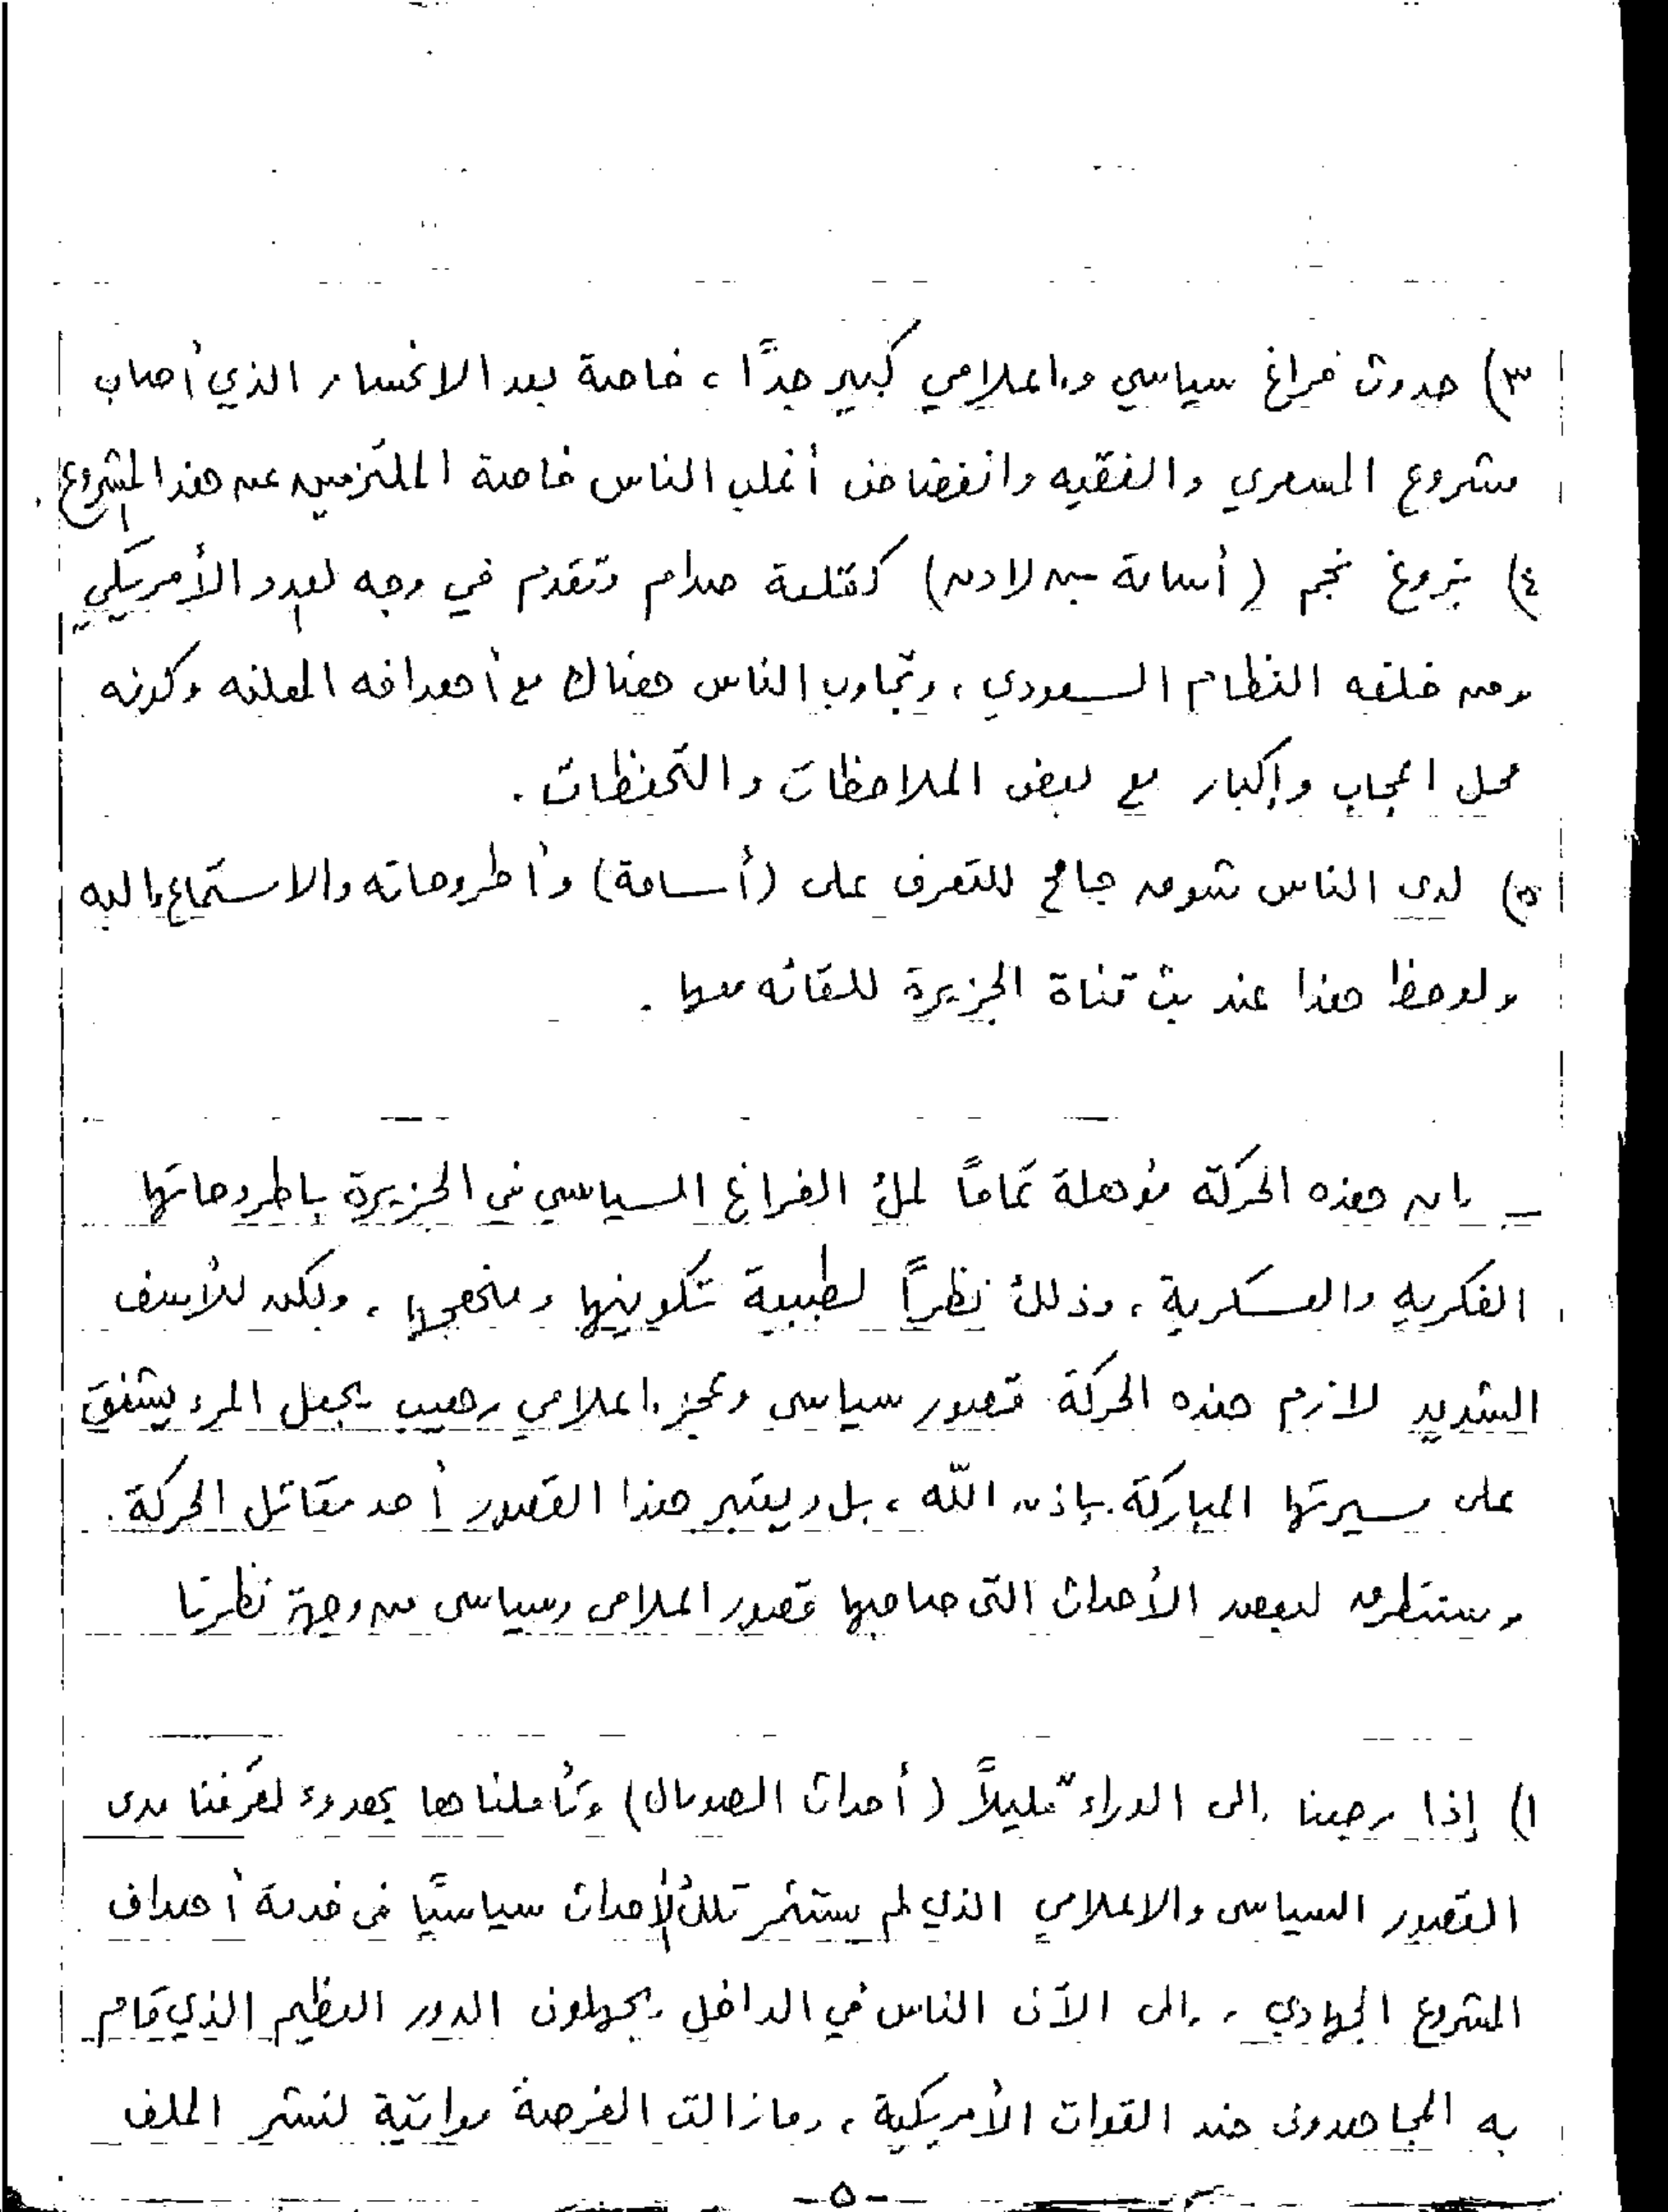 ٣) حدوث فراغ سياسي وإعلامي كبير جدًا ، خاصة بعد الانحسار الذي أصاب
مشروع المسعري والفقيه وانفضاض أغلب الناس خاصة الملتزمين عن هذا المشروع .
٤) بزوغ نجم (أسامة بن لادن) كقلعة صدام تتقدم في وجه العدو الأمريكي
ومن خلفه النظام السعودي ، وتجاوب الناس هناك مع أهدافه المعلنه وكونه
محل اعجاب وإكبار مع بعض الملاحظات والتحفظات .
٥) لدى الناس شوق جامح للتعرف على (أسامة) وأطروحاته والاستماع إليه
ولوحظ هذا عند بث قناة الجزيرة للقائه معها .
ـ إن هذه الحركة مؤهلة تمامًا لملئ الفراغ السياسي في الجزيرة باطروحاتها
الفكريه والعسكرية ، وذلك نظرًا لطبيعة تكوينها ومنهجها ، ولكن للأسف
الشديد لازم هذه الحركة قصور سياسى وعجز إعلامي رهيب يجعل المرء يشفق
على مسيرتها المباركة بإذن الله ، بل ويعتبر هذا القصور أحد مقاتل الحركة .
وسنتطرق لبعض الأحداث التى صاحبها قصور اعلامى وسياسى من وجهة نظرنا
١) إذا رجعنا إلى الوراء قليلاً (أحداث الصومال) وتأملناها بهدوء لعرفنا مدى
القصور السياسى والاعلامي الذي لم يستثمر تلك الأحداث سياسيًا فى خدمة أهداف
المشروع الجهادي ، وإلى الآن الناس في الداخل يجهلون الدور العظيم الذي قام
به المجاهدون ضد القوات الأمريكية ، ومازالت الفرصة مواتية لنشر الملف
-٥-